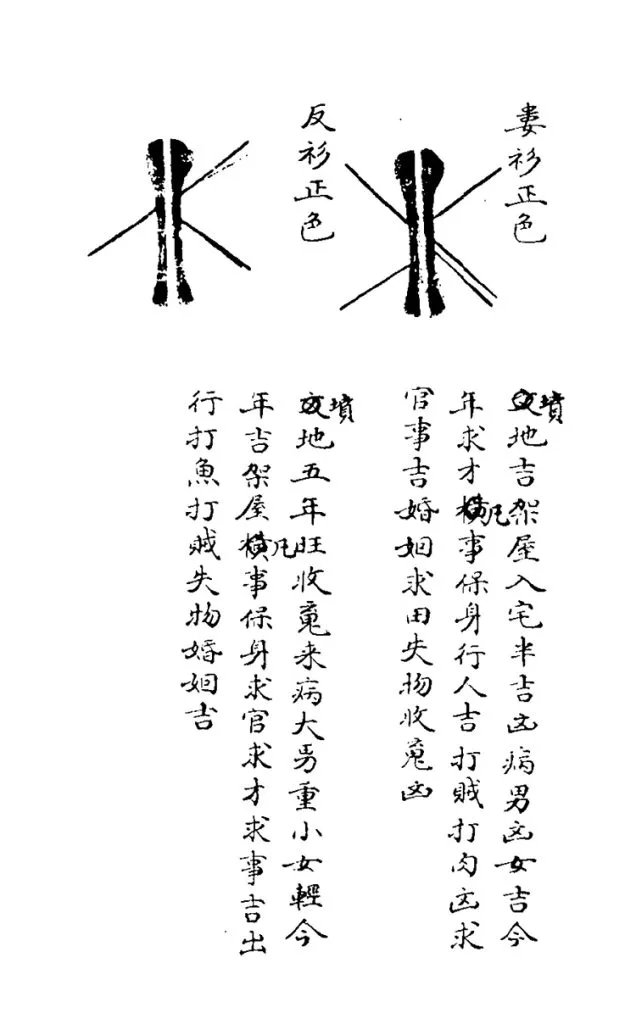 娄衫正色
墳地吉架屋入宅半吉凶病男凶女吉今
年求才凡事保身行人吉打贼打肉凶求
官事吉婚姻求田失物收蒐凶
反衫正色
墳地五年旺收蒐来病大男重小女輕今
年吉架屋凡事保身求官求才求事吉出
行打魚打贼失物婚姻吉